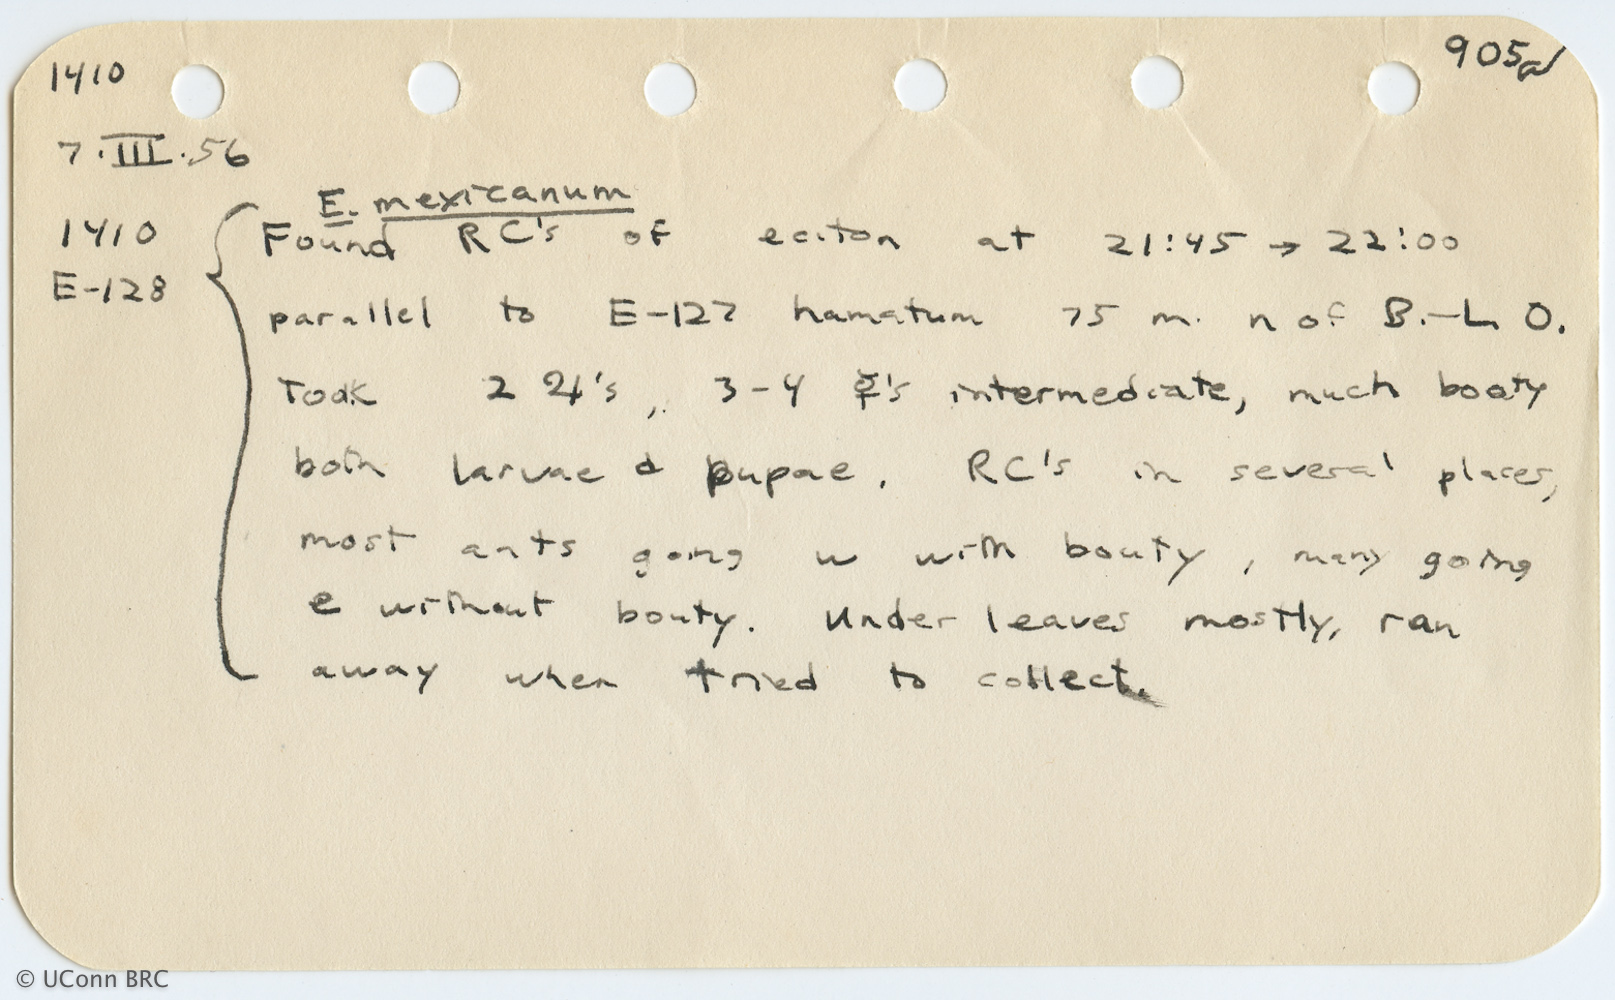 1410
905a
7.III.56
E. mexicanum
1410 Found RC's of eciton at 21:45 → 22:00
E-128
parallel to E-127 hamatum 75 m. n of B.-L O.
Took 2 ♃'s, 3-4 ☿'s intermediate, much booty
both larvae & pupae. RC's in several places,
most ants going w with bouty, many going
e without bouty. Under leaves mostly, ran
away when tried to collect.
© UConn BRC